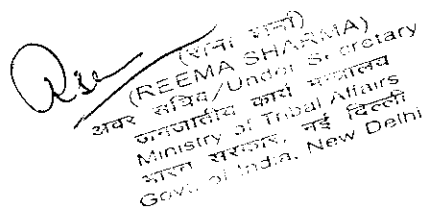 (REEMA SHARMA)
अवर सचिव/Under Secretary
जनजातीय कार्य मंत्रालय
Ministry of Tribal Affairs
भारत सरकार, नई दिल्ली
Govt. of India, New Delhi